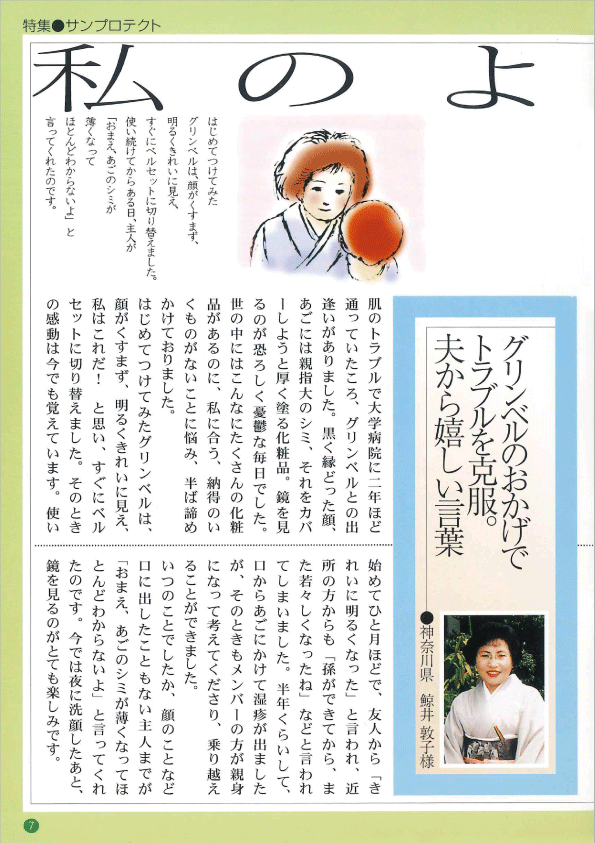 特集●サンプロテクト
私のよ
はじめてつけてみた
グリンベルは、顔がくすまず、
明るくきれいに見え、
すぐにベルセットに切り替えました。
使い続けてからある日、主人が
「おまえ、あごのシミが
薄くなって
ほとんどわからないよ」と
言ってくれたのです。
グリンベルのおかげで
トラブルを克服。
夫から嬉しい言葉
●神奈川県 鯨井敦子様
肌のトラブルで大学病院に二年ほど
通っていたころ、グリンベルとの出
逢いがありました。黒く縁どった顔、
あごには親指大のシミ、それをカバ
ーしようと厚く塗る化粧品。鏡を見
るのが恐ろしく憂鬱な毎日でした。
世の中にはこんなにたくさんの化粧
品があるのに、私に合う、納得のい
くものがないことに悩み、半ば諦め
かけておりました。
はじめてつけてみたグリンベルは、
顔がくすまず、明るくきれいに見え、
私はこれだ! と思い、すぐにベル
セットに切り替えました。そのとき
の感動は今でも覚えています。使い
始めてひと月ほどで、友人から「き
れいに明るくなった」と言われ、近
所の方からも「孫ができてから、ま
た若々しくなったね」などと言われ
てしまいました。半年くらいして、
口からあごにかけて湿疹が出ました
が、そのときもメンバーの方が親身
になって考えてくださり、乗り越え
ることができました。
いつのことでしたか、顔のことなど
口に出したこともない主人までが
「おまえ、あごのシミが薄くなってほ
とんどわからないよ」と言ってくれ
たのです。今では夜に洗顔したあと、
鏡を見るのがとても楽しみです。
7